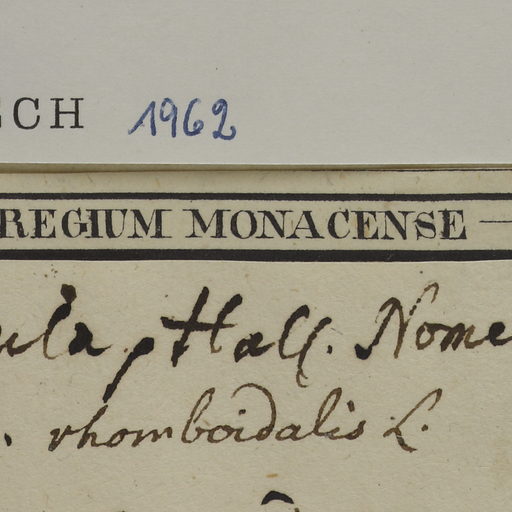 SCH 1962
REGIUM MONACENSE
ula, Hall. Nome
. rhomboidalis L.